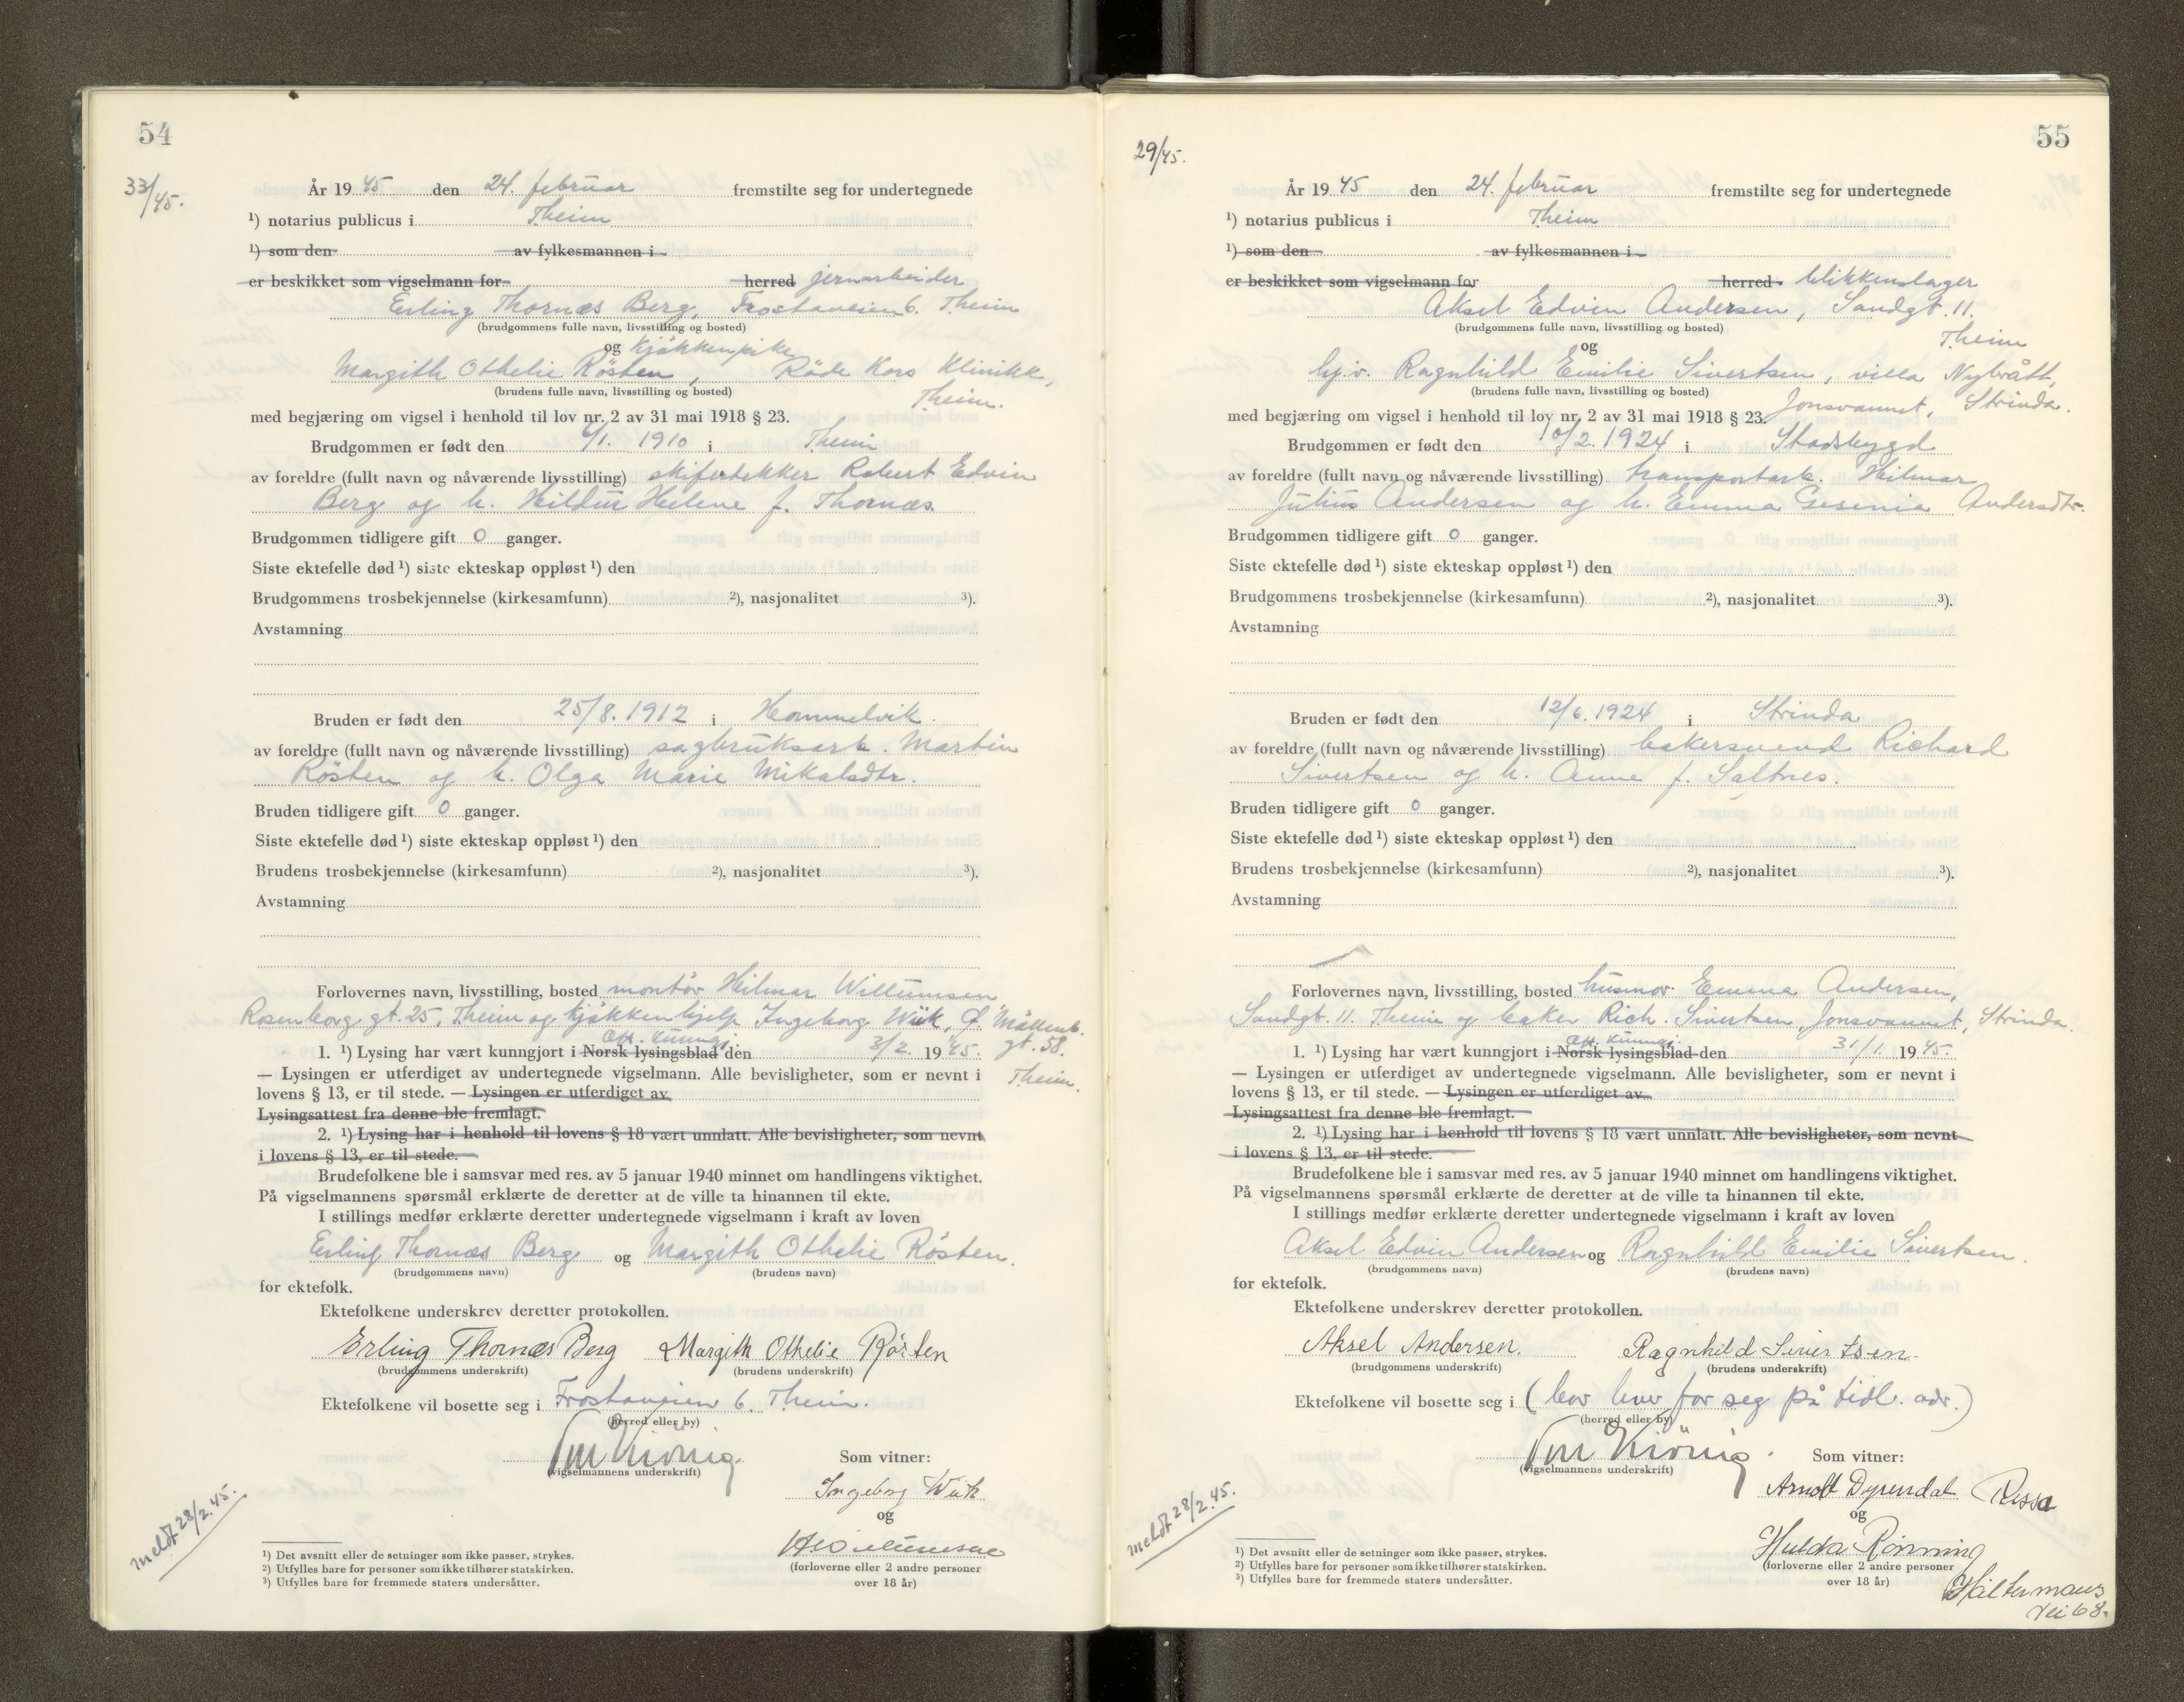 54
33/45.
År 1945 den 24. februar fremstilte seg for undertegnede
¹) notarius publicus i Theim
¹) som den av fylkesmannen i
er beskikket som vigselmann for herred jernarbeider
Erling Thornæs Berg, Frostaveien 6. Theim
(brudgommens fulle navn, livsstilling og bosted)
og kjøkkenpike
Margith Othelie Røsten, Røde Kors Klinikk,
(brudens fulle navn, livsstilling og bosted) Theim.
med begjæring om vigsel i henhold til lov nr. 2 av 31 mai 1918 § 23.
Brudgommen er født den 6/1. 1910 i Theim
av foreldre (fullt navn og nåværende livsstilling) skifertekker Robert Edvin
Berg og h. Hildur Helene f. Thornæs
Brudgommen tidligere gift 0 ganger.
Siste ektefelle død ¹) siste ekteskap oppløst ¹) den
Brudgommens trosbekjennelse (kirkesamfunn) ²), nasjonalitet ³).
Avstamning
Bruden er født den 25/8. 1912 i Hommelvik.
av foreldre (fullt navn og nåværende livsstilling) sagbruksarb. Martin
Røsten og h. Olga Marie Mikalsdtr.
Bruden tidligere gift 0 ganger.
Siste ektefelle død ¹) siste ekteskap oppløst ¹) den
Brudens trosbekjennelse (kirkesamfunn) ²), nasjonalitet ³).
Avstamning
Forlovernes navn, livsstilling, bosted montør Hilmar Willumsen,
Rosenborg gt. 25, Theim og kjøkkenhjelp Ingeborg Wiik, Ø. Møllenb.
gt. 58.
Theim.
Off. kunngj.
1. ¹) Lysing har vært kunngjort i Norsk lysingsblad den 3/2. 1945.
— Lysingen er utferdiget av undertegnede vigselmann. Alle bevisligheter, som er nevnt i
lovens § 13, er til stede. — Lysingen er utferdiget av
Lysingsattest fra denne ble fremlagt.
2. ¹) Lysing har i henhold til lovens § 18 vært unnlatt. Alle bevisligheter, som nevnt
i lovens § 13, er til stede.
Brudefolkene ble i samsvar med res. av 5 januar 1940 minnet om handlingens viktighet.
På vigselmannens spørsmål erklærte de deretter at de ville ta hinannen til ekte.
I stillings medfør erklærte deretter undertegnede vigselmann i kraft av loven
Erling Thornæs Berg og Margith Othelie Røsten.
(brudgommens navn) (brudens navn)
for ektefolk.
Ektefolkene underskrev deretter protokollen.
Erling Thornæs Berg Margith Othelie Røsten
(brudgommens underskrift) (brudens underskrift)
Ektefolkene vil bosette seg i Frostaveien 6. Theim.
(herred eller by)
(vigselmannens underskrift)
Som vitner:
Ingeborg Wiik
og
HWillumsen
(forloverne eller 2 andre personer
over 18 år)
meldt 28/2.45.
¹) Det avsnitt eller de setninger som ikke passer, strykes.
²) Utfylles bare for personer som ikke tilhører statskirken.
³) Utfylles bare for fremmede staters undersåtter.
55
29/45.
År 1945 den 24. februar fremstilte seg for undertegnede
¹) notarius publicus i Theim
¹) som den av fylkesmannen i
er beskikket som vigselmann for herred blikkenslager
Aksel Edvin Andersen, Sandgt. 11.
(brudgommens fulle navn, livsstilling og bosted)
og Theim
hj.v. Ragnhild Emilie Sivertsen, villa Nybråth,
(brudens fulle navn, livsstilling og bosted)
med begjæring om vigsel i henhold til lov nr. 2 av 31 mai 1918 § 23. Jonsvannet, Strinda.
Brudgommen er født den 10/2. 1924 i Stadsbygd
av foreldre (fullt navn og nåværende livsstilling) transportarb. Hilmar
Julius Andersen og h. Emma Gesenia Andersdtr.
Brudgommen tidligere gift 0 ganger.
Siste ektefelle død ¹) siste ekteskap oppløst ¹) den
Brudgommens trosbekjennelse (kirkesamfunn) ²), nasjonalitet ³).
Avstamning
Bruden er født den 12/6. 1924 i Strinda
av foreldre (fullt navn og nåværende livsstilling) bakersvend Richard
Sivertsen og h. Anne f. Saltnes.
Bruden tidligere gift 0 ganger.
Siste ektefelle død ¹) siste ekteskap oppløst ¹) den
Brudens trosbekjennelse (kirkesamfunn) ²), nasjonalitet ³).
Avstamning
Forlovernes navn, livsstilling, bosted husmor Emma Andersen,
Sandgt. 11. Theim og baker Rich. Sivertsen, Jonsvannet, Strinda.
Off. kunngj.
1. ¹) Lysing har vært kunngjort i Norsk lysingsblad den 31/1. 1945.
— Lysingen er utferdiget av undertegnede vigselmann. Alle bevisligheter, som er nevnt i
lovens § 13, er til stede. — Lysingen er utferdiget av
Lysingsattest fra denne ble fremlagt.
2. ¹) Lysing har i henhold til lovens § 18 vært unnlatt. Alle bevisligheter, som nevnt
i lovens § 13, er til stede.
Brudefolkene ble i samsvar med res. av 5 januar 1940 minnet om handlingens viktighet.
På vigselmannens spørsmål erklærte de deretter at de ville ta hinannen til ekte.
I stillings medfør erklærte deretter undertegnede vigselmann i kraft av loven
Aksel Edvin Andersen og Ragnhild Emilie Sivertsen.
(brudgommens navn) (brudens navn)
for ektefolk.
Ektefolkene underskrev deretter protokollen.
Aksel Andersen. Ragnhild Sivertsen.
(brudgommens underskrift) (brudens underskrift)
Ektefolkene vil bosette seg i (bor hver for seg på tidl. adr.)
(herred eller by)
(vigselmannens underskrift)
Som vitner:
Arnolt Dyrendal Rissa
og
Hulda Rønning
(forloverne eller 2 andre personer
over 18 år)
Hiltermans
vei 68.
meldt 28/2.45.
¹) Det avsnitt eller de setninger som ikke passer, strykes.
²) Utfylles bare for personer som ikke tilhører statskirken.
³) Utfylles bare for fremmede staters undersåtter.